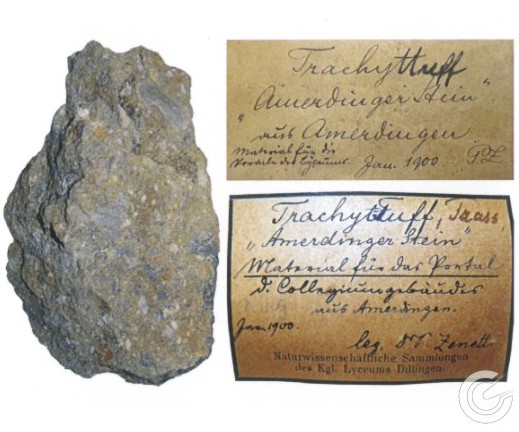 Trachyttuff
"Amerdinger Stein"
aus Amerdingen
Material für die
des Lyceums. Jan. 1900 PZ
Trachyttuff, Trass,
"Amerdinger Stein"
Material für das Portal
d. Collegiumgebäudes
aus Amerdingen.
Jan. 1900.
leg. Dr. Zenetti
Naturwissenschaftliche Sammlungen
des Kgl. Lyceums Dillingen.